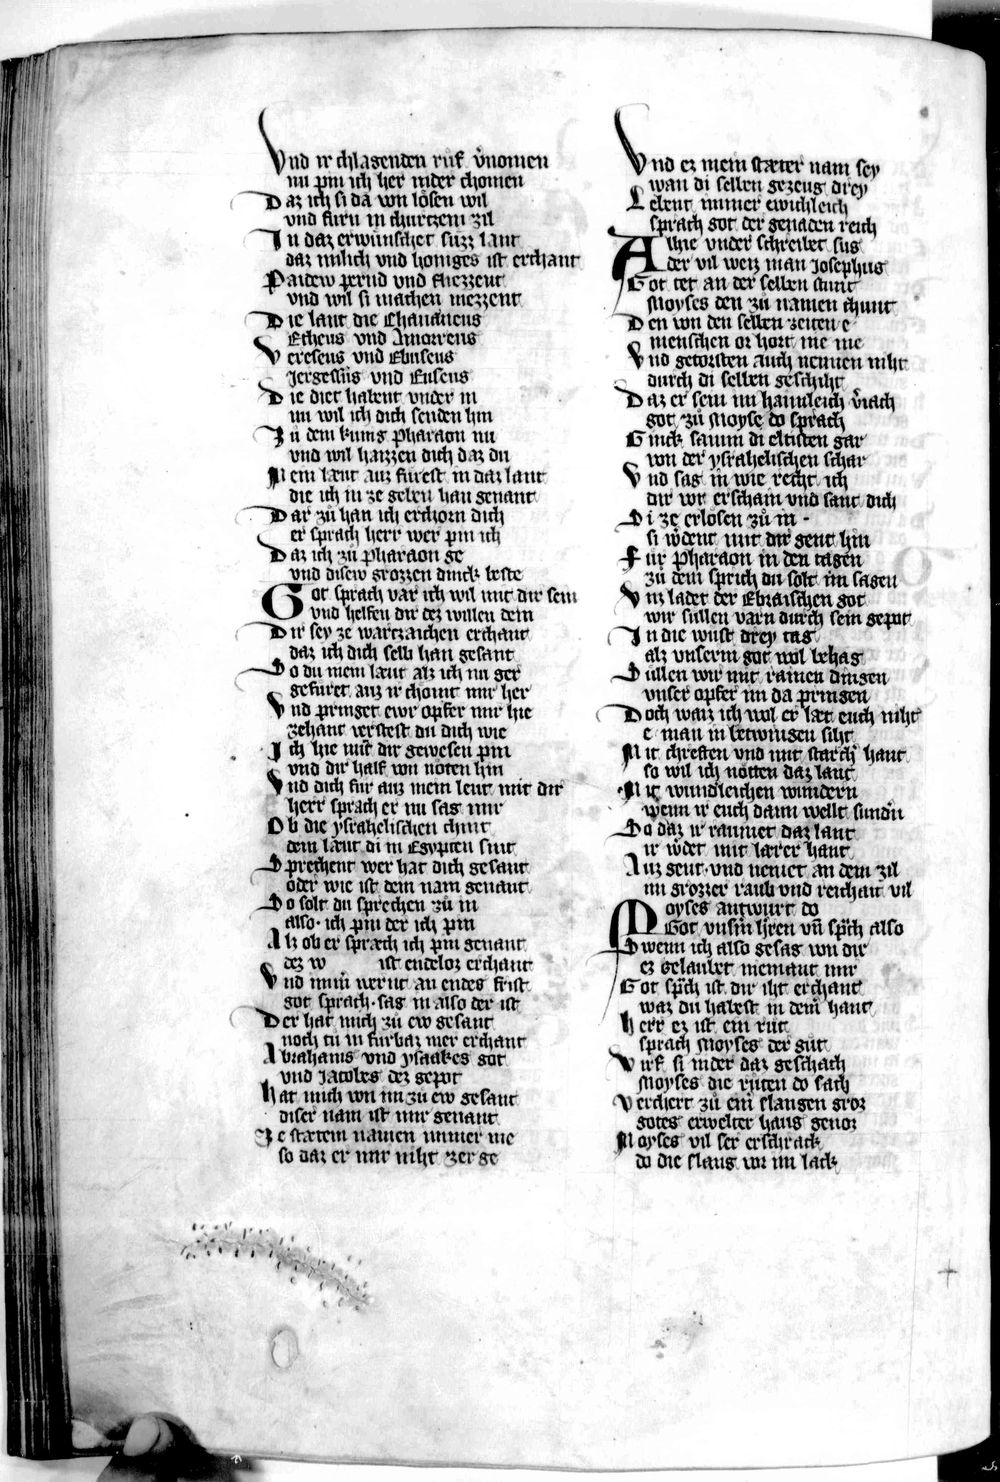 Vnd ir chlagenden ruͦf v̾nomen
nu pin ich her nider chomen
Daz ich si da von loͤsen wil
vnd furn in churtzem zil
In daz erwunschet suͤzz lant
daz milich vnd honiges ist erchant
Paidew pernd vnd fliezzent
vnd wil si machen niezzent
Die lant die Chananeus
Etheus vnd Amorreus
Vereseus vnd Ebuseus
Jergesius vnd Eueus
Die diet habent vnder in
nu wil ich dich senden hin
Zu dem kunig Pharaon nu
vnd wil haizzen dich daz du
Mein læut auz fuͤrest in daz lant
die ich in ze geben han genant
Dar zuͦ han ich erchorn dich
er sprach herr wer pin ich
Daz ich zuͦ Pharaon ge
vnd disew grozzen dinck beste
Got sprach var ich wil mit dir sein
vnd helfen dir dez willen dein
Dir sey ze wartzaichen erchant
daz ich dich selb han gesant
So du mein læut alz ich nu ger
gefuret auz ir chomt mir her
Vnd pringet ewr opfer mir hie
zehant verstest du dich wie
Ich hie mit dir gewesen pin
vnd dir half von noͤten hin
Vnd dich fur auz mein leut mit dir
herr sprach er nu sag mir
Ob die ysrahelischen chint
dem læut di in Egypten sint
Sprechent wer hat dich gesant
oder wie ist dein nam genant
So solt du sprechen zuͦ in
also · ich pin der ich pin
Alz ob er spræch ich pin genant
dez w ist endeloz erchant
Vnd imm̾ wernt an endes frist
got sprach · sag in also der ist
Der hat mich zuͦ ew gesant
noch tu in furbaz mer erchant
Abrahams vnd ysaakes got
vnd Jacobes dez gepot
Hat mich von im zu ew gesant
diser nam ist mir genant
Ze stætem namen immer me
so daz er mir niht zerge
Vnd ez mein stæter nam sey
wan di selben gezeug drey
Lebent immer ewichleich
sprach got der genaden reich
Alhie vnder schreibet sus
der vil weiz man Josephus
Got tet an der selben stunt
Moyses den zuͦ namen chunt
Den von den selben zeiten e
menschen or hort nie me
Vnd getorsten auch nennen niht
durch di selben geschiht
Daz er sein im haimleich v̾iach
got zuͦ Moyse do sprach
Ginck samm di eltisten gar
von der ysrahelischen schar
Vnd sag in wie recht ich
dir wr erschain vnd sant dich
Di ze erlosen zuͦ in ·
si wͤdent mit dir gent hin
Fur Pharaon in den tagen
zuͦ dem sprich du solt im sagen
Vnz ladet der Ebraischen got
wir suͤllen varn durch sein gepot
In die wuͤst drey tag
alz vnserm got wol behag
Suͤllen wir mit rainen dingen
vnser opfer im da pringen
Doch waiz ich wol er læt euch niht
e man in betwingen siht
Mit chreften vnd mit starch̾ hant
so wil ich noͤtten daz lant
Mit wundleichen wundern
wenn ir euch dann wellt sundn̾
So daz ir raumet daz lant
ir wͤdet mit lærer hant
Auz gent · vnd nemet an dem zil
im grozzer raub vnd reichait vil
Moyses antwurt do
Got vnsm̾ h̾ren vn̄ sp̾ch also
Swenn ich also gesag von dir
ez gelaubet niemant mir
Got sp̾ch ist dir iht erchant
waz du habest in dein hant
Herr ez ist ein ruͤt
sprach Moyses der guͤt
Wirf si nider daz geschach
Moyses die ruͤten do sach
Verchert zuͦ eim slangen groz
gotes erwelter haus genoz
Moyses vil ser erschrack
do die slang vor im lack